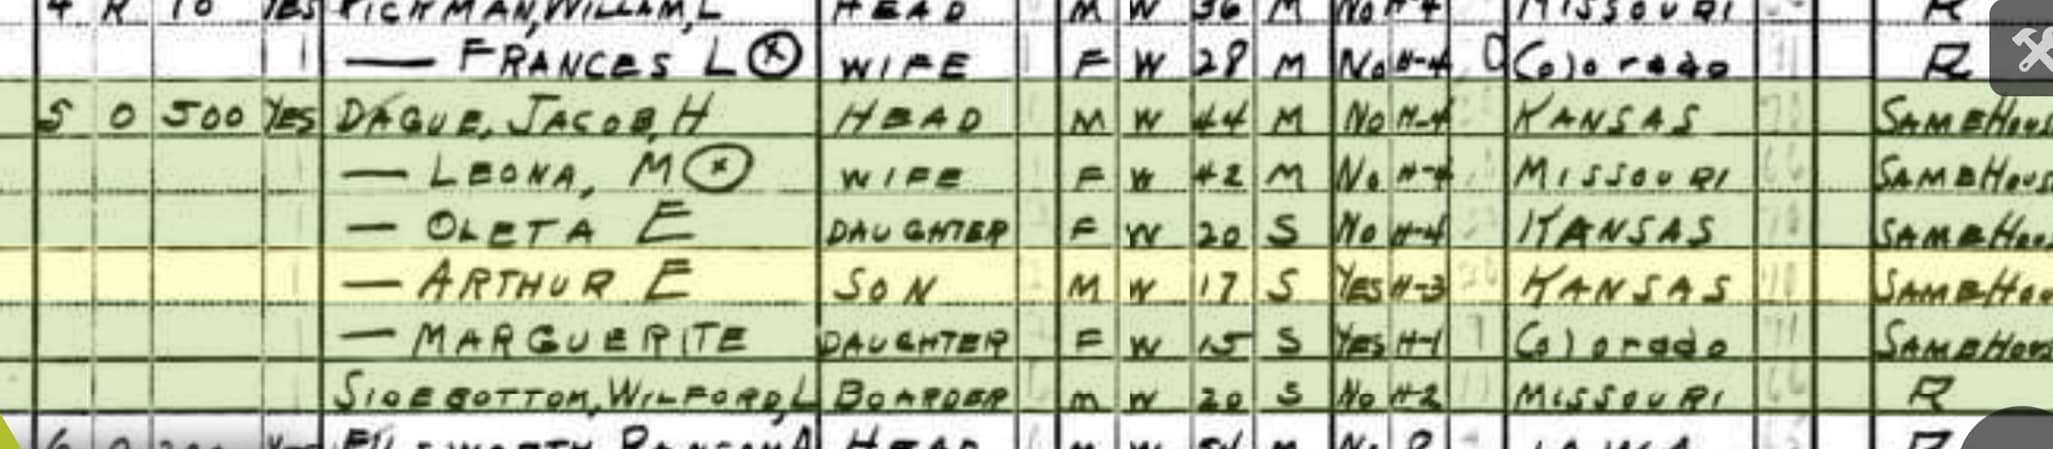 4 R 10 YES PICKMAN, WILLIAM, L HEAD M W 36 M No H-4 MISSOURI R
— FRANCES L Ⓧ WIFE F W 28 M No H-4 Colorado R
5 O 500 YES DAGUE, JACOB, H HEAD M W 44 M No H-4 KANSAS SAMEHous
— LEONA, M Ⓧ WIFE F W 42 M No H-4 MISSOURI SAMEHous
— OLETA E DAUGHTER F W 20 S No H-4 KANSAS SAMEHou
— ARTHUR E SON M W 17 S YES H-3 KANSAS SAMEHou
— MARGUERITE DAUGHTER F W 15 S YES H-1 Colorado SAMEHous
SIDEBOTTOM, WILFORD, L BOARDER M W 20 S No H-2 MISSOURI R
HEAD